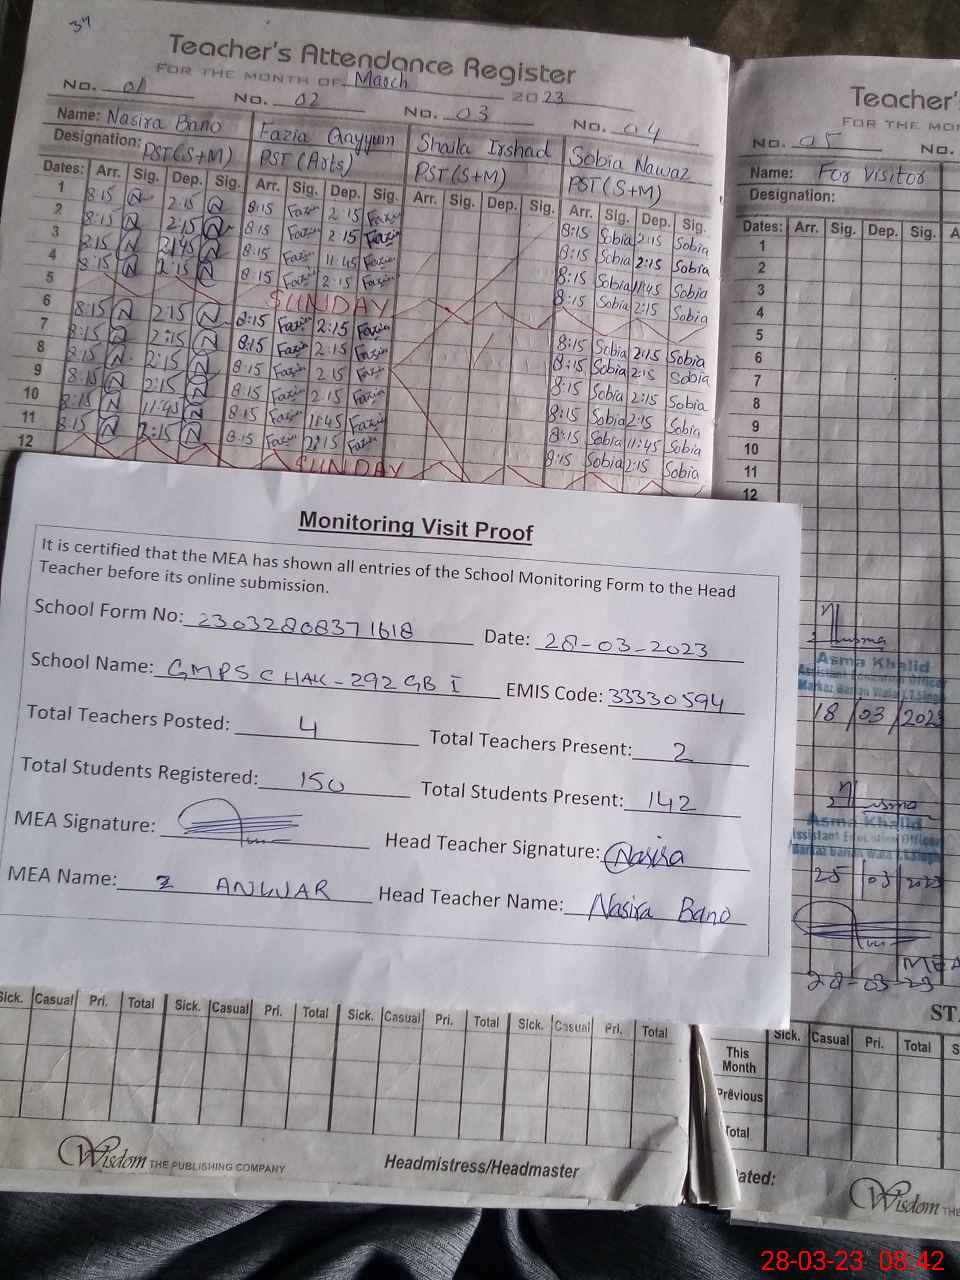 Teacher's Attendance Register
FOR THE MONTH OF March 2023
No. 01 No. 02 No. 03 No. 04
Name: Nasira Bano Fazia Qayyum Shaila Irshad Sobia Nawaz
Designation: PST(S+M) PST (Arts) PST (S+M) PST (S+M)
Dates: Arr. Sig. Dep. Sig. Arr. Sig. Dep. Sig. Arr. Sig. Dep. Sig. Arr. Sig. Dep. Sig.
1 8:15 N 2:15 N 8:15 Fazia 2:15 Fazia 8:15 Sobia 2:15 Sobia
2 8:15 N 2:15 N 8:15 Fazia 2:15 Fazia 8:15 Sobia 2:15 Sobia
3 N N 8:15 Fazia 11:45 Fazia 8:15 Sobia 11:45 Sobia
4 8:15 N 2:15 N 8:15 Fazia 2:15 Fazia 8:15 Sobia 2:15 Sobia
5 SUNDAY
6 8:15 N 2:15 N 8:15 Fazia 2:15 Fazia 8:15 Sobia 2:15 Sobia
7 8:15 N 2:15 N 8:15 Fazia 2:15 Fazia 8:15 Sobia 2:15 Sobia
8 8:15 N 2:15 N 8:15 Fazia 2:15 Fazia 8:15 Sobia 2:15 Sobia
9 8:15 N 2:15 N 8:15 Fazia 2:15 Fazia 8:15 Sobia 2:15 Sobia
10 8:15 N 11:45 N 8:15 Fazia 11:45 Fazia 8:15 Sobia 11:45 Sobia
11 8:15 N 2:15 N 8:15 Fazia 2:15 Fazia 8:15 Sobia 2:15 Sobia
12 SUNDAY
Teacher's
FOR THE MON
No. 05 No.
Name: For Visitor
Designation:
Dates: Arr. Sig. Dep. Sig. A
1
2
3
4
5
6
7
8
9
10
11
12
Monitoring Visit Proof
It is certified that the MEA has shown all entries of the School Monitoring Form to the Head
Teacher before its online submission.
School Form No: 23032808371618 Date: 28-03-2023
School Name: GMPS CHAK-292 GB I EMIS Code: 33330594
Total Teachers Posted: 4 Total Teachers Present: 2
Total Students Registered: 150 Total Students Present: 142
MEA Signature: Head Teacher Signature: Nasira
MEA Name: Z ANWAR Head Teacher Name: Nasira Bano
Asma Khalid
Assistant Education Officer
18/03/2023
Asma Khalid
Assistant Education Officer
25/03/2023
MEA
28-03-23
Sick. Casual Pri. Total Sick. Casual Pri. Total Sick. Casual Pri. Total Sick. Casual Pri. Total
STA
Sick. Casual Pri. Total S
This
Month
Previous
Total
Wisdom THE PUBLISHING COMPANY Headmistress/Headmaster
Dated:
Wisdom THE
28-03-23 08:42